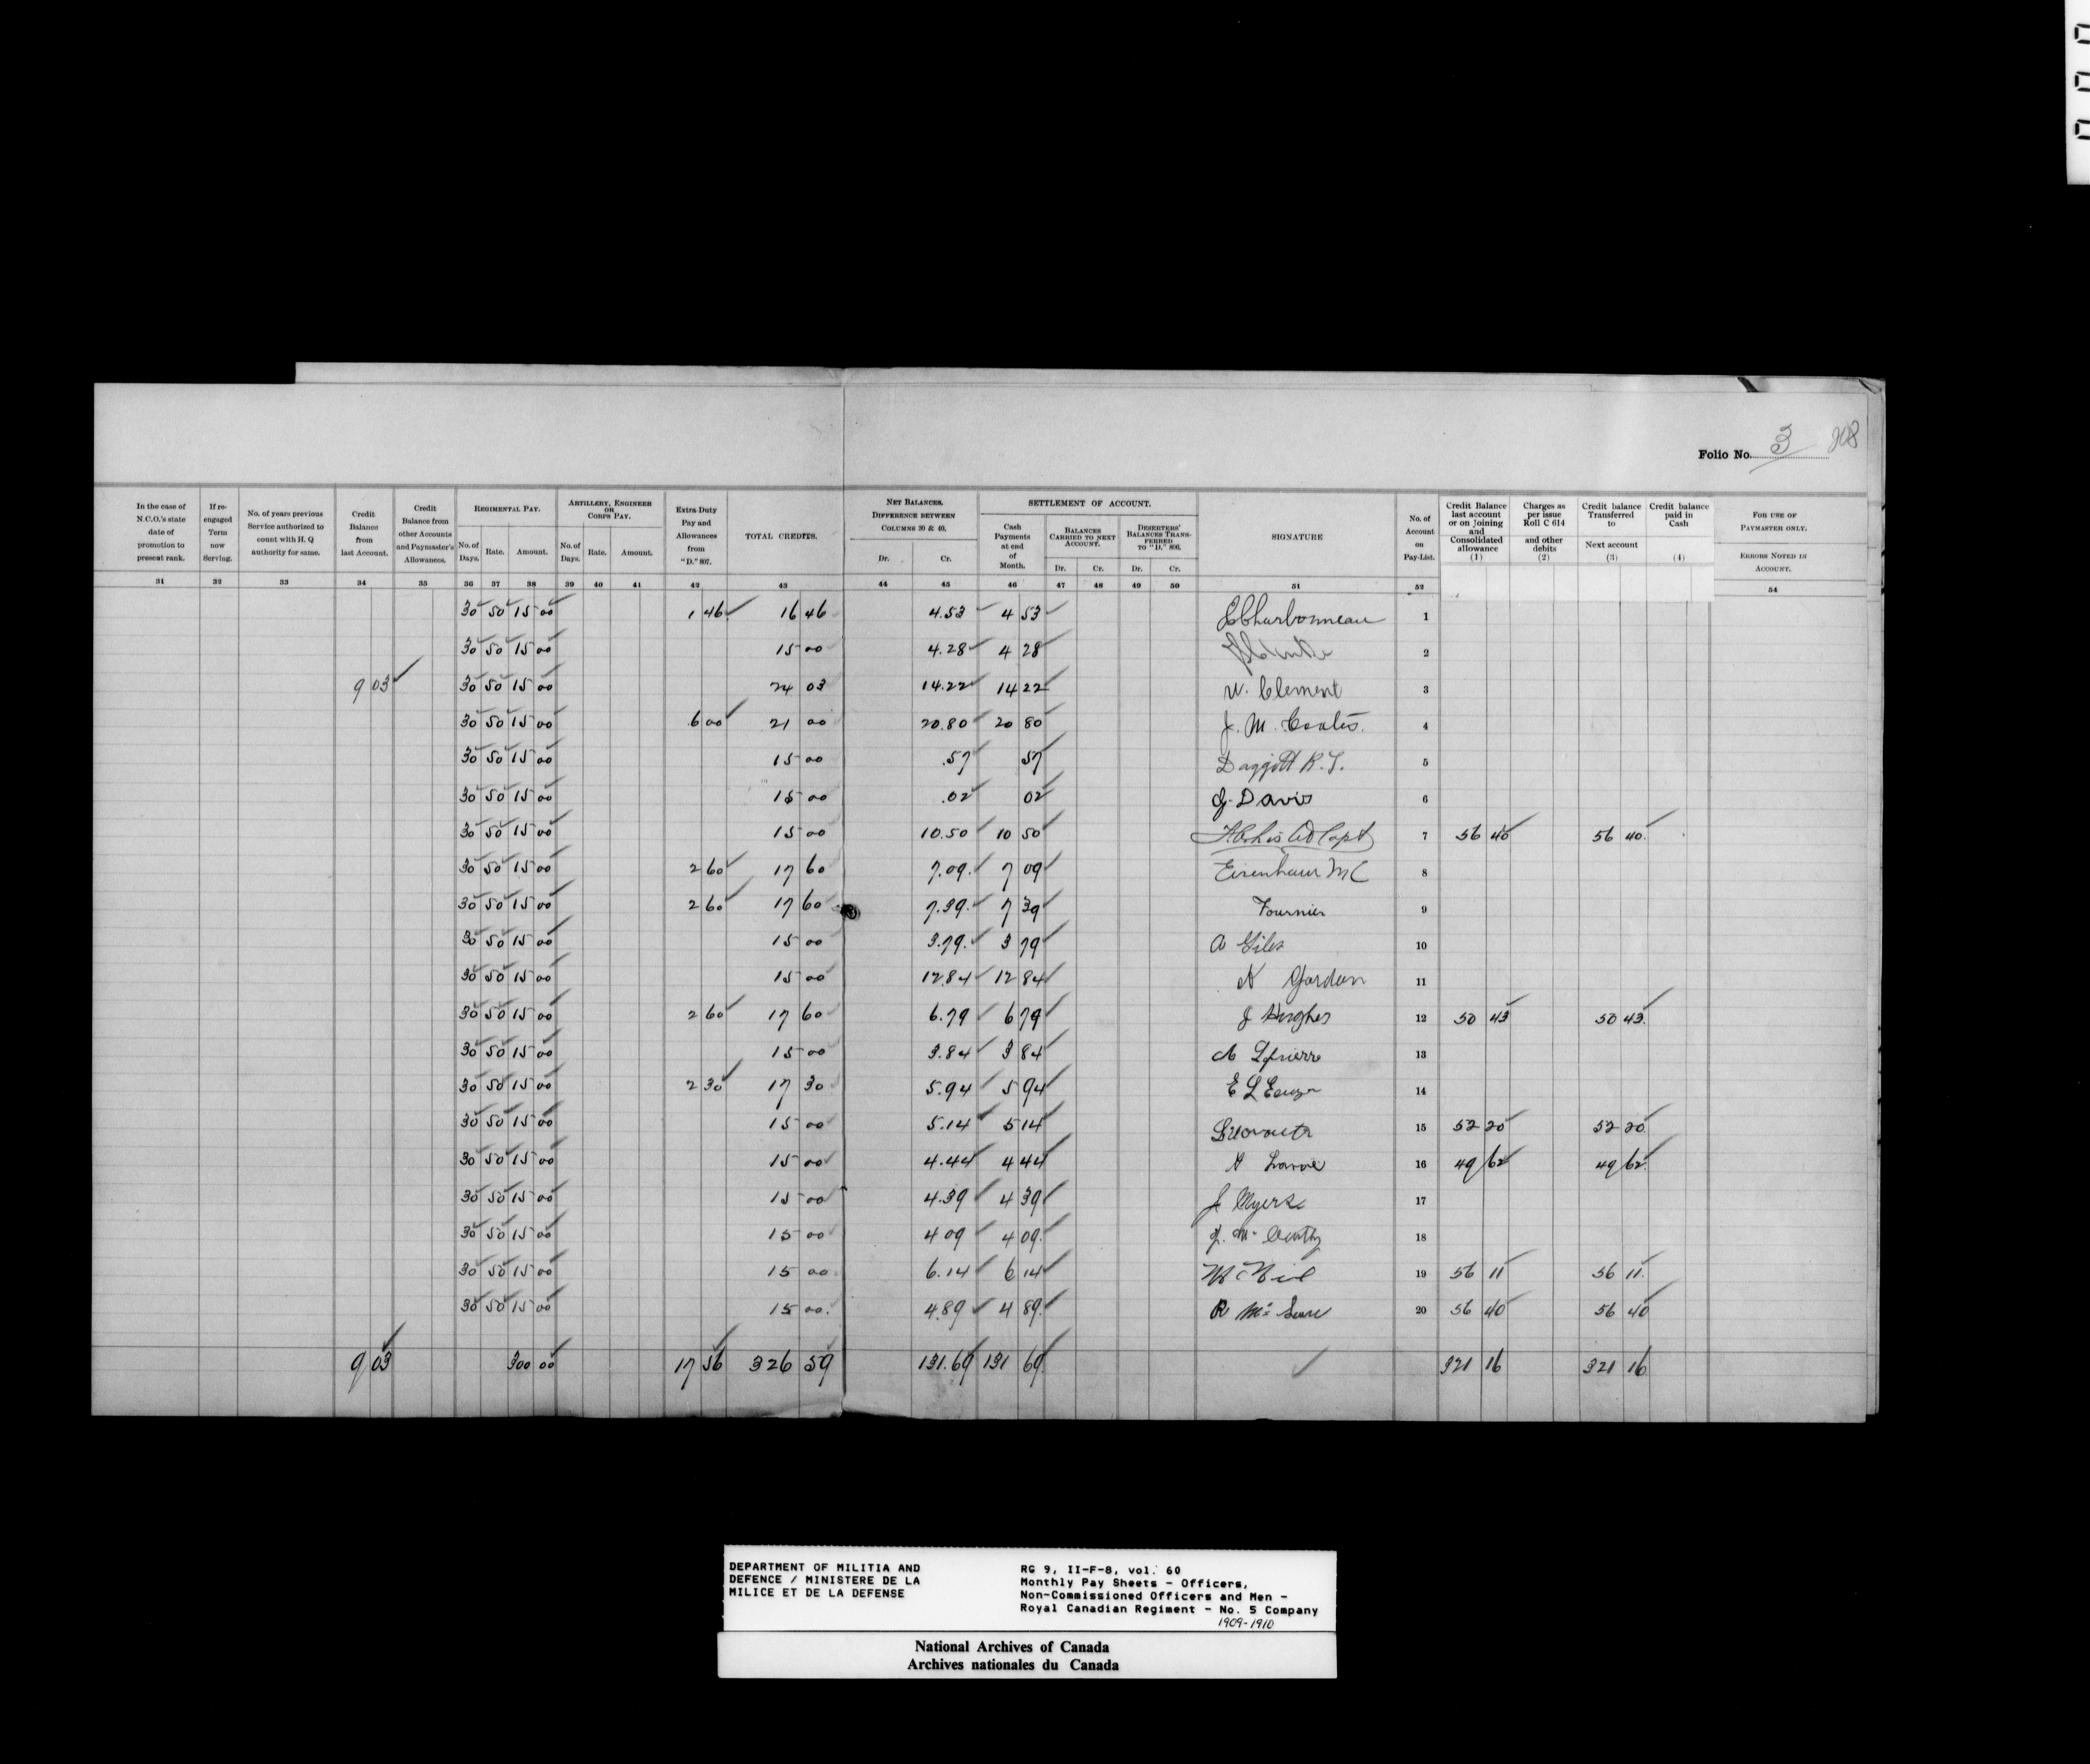 Folio No. 3 208
In the case of N.C.O.'s state date of promotion to present rank.
If re-engaged Term now Serving.
No. of years previous Service authorized to count with H. Q authority for same.
Credit Balance from last Account.
Credit Balance from other Accounts and Paymaster's Allowances.
REGIMENTAL PAY.
No. of Days. Rate. Amount.
ARTILLERY, ENGINEER OR CORPS PAY.
No. of Days. Rate. Amount.
Extra-Duty Pay and Allowances from "D." 807.
TOTAL CREDITS.
NET BALANCES. DIFFERENCE BETWEEN COLUMNS 30 & 40.
Dr. Cr.
SETTLEMENT OF ACCOUNT.
Cash Payments at end of Month.
BALANCES CARRIED TO NEXT ACCOUNT.
Dr. Cr.
DESERTERS' BALANCES TRANSFERRED TO "D." 806.
Dr. Cr.
SIGNATURE
No. of Account on Pay-List.
Credit Balance last account or on Joining and Consolidated allowance (1)
Charges as per issue Roll C 614 and other debits (2)
Credit balance Transferred to Next account (3)
Credit balance paid in Cash (4)
FOR USE OF PAYMASTER ONLY.
ERRORS NOTED IN ACCOUNT.
31 32 33 34 35 36 37 38 39 40 41 42 43 44 45 46 47 48 49 50 51 52 54
30 50 15 00 1 46 16 46 4.53 4 53 Charbonneau 1
30 50 15 00 15 00 4.28 4 28 2
9 03 30 50 15 00 24 03 14.22 14 22 W. Clement 3
30 50 15 00 6 00 21 00 20.80 20 80 J. M. Coates. 4
30 50 15 00 15 00 .57 57 Daggett R. T. 5
30 50 15 00 15 00 .02 02 J. Davis 6
30 50 15 00 15 00 10.50 10 50 Capt 7 56 40 56 40.
30 50 15 00 2 60 17 60 7.09. 7 09 Eisenhaur M C 8
30 50 15 00 2 60 17 60 7.39. 7 39 Fournier 9
30 50 15 00 15 00 3.79. 3 79 A Giles 10
30 50 15 00 15 00 12.84 12 84 A Gordon 11
30 50 15 00 2 60 17 60 6.79 6 79 J Hughes 12 50 43 50 43.
30 50 15 00 15 00 3.84 3 84 13
30 50 15 00 2 30 17 30 5.94 5 94 14
30 50 15 00 15 00 5.14 5 14 15 52 20 52 20
30 50 15 00 15 00 4.44 4 44 16 49 62 49 62.
30 50 15 00 15 00 4.39 4 39 J Myers 17
30 50 15 00 15 00 4 09 4 09. 18
30 50 15 00 15 00 6.14 6 14 McNeil 19 56 11 56 11.
30 50 15 00 15 00. 4.89 4 89. 20 56 40 56 40
9 03 300 00 17 56 326 59 131.69 131 69. 321 16 321 16
DEPARTMENT OF MILITIA AND
DEFENCE / MINISTERE DE LA
MILICE ET DE LA DEFENSE
RG 9, II-F-8, vol. 60
Monthly Pay Sheets - Officers,
Non-Commissioned Officers and Men -
Royal Canadian Regiment - No. 5 Company
1909-1910
National Archives of Canada
Archives nationales du Canada